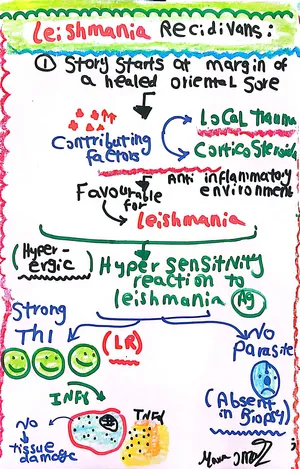 Leishmania Recidivans:
① Story starts at margin of
a healed oriental sore
Contributing
factors
Local Trauma
Corticosteroids
Anti inflammatory
environment
Favourable
for
Leishmania
(Hyper-
ergic)
Hypersensitivity
reaction to
leishmania Ag
(LR)
Strong
Th1
No
parasite
(Absent
in Biopsy)
INFγ
TNFα
NO
tissue
damage